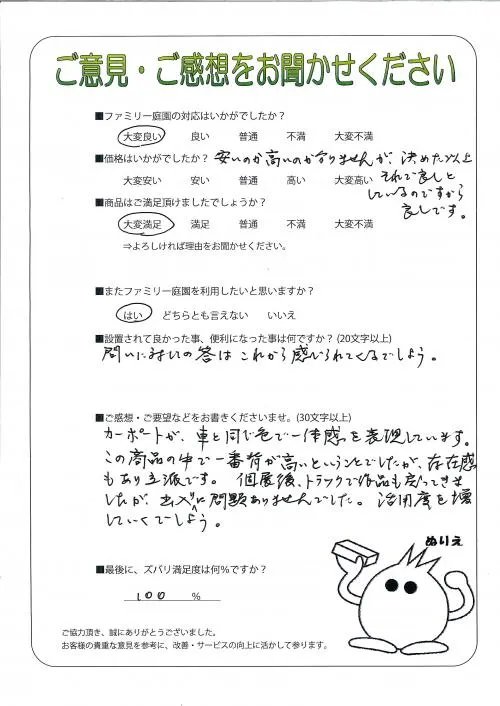 ご意見・ご感想をお聞かせください
■ファミリー庭園の対応はいかがでしたか?
大変良い 良い 普通 不満 大変不満
■価格はいかがでしたか? 安いのか高いのか分りませんが、決めた以上
大変安い 安い 普通 高い 大変高い それで良しと
しているのですから
良しです。
■商品はご満足頂けましたでしょうか?
大変満足 満足 普通 不満 大変不満
⇒よろしければ理由をお聞かせください。
■またファミリー庭園を利用したいと思いますか?
はい どちらとも言えない いいえ
■設置されて良かった事、便利になった事は何ですか?(20文字以上)
問いに対しての答はこれから感じられてくるでしょう。
■ご感想・ご要望などをお書きくださいませ。(30文字以上)
カーポートが、車と同じ色で一体感を表現しています。
この商品の中で一番背が高いということでしたが、存在感
もあり立派です。個展後、トラックで作品も戻ってきま
したが、出入りに問題ありませんでした。活用度を増
していくでしょう。
ぬりえ
■最後に、ズバリ満足度は何%ですか?
100 %
ご協力頂き、誠にありがとうございました。
お客様の貴重な意見を参考に、改善・サービスの向上に活かして参ります。